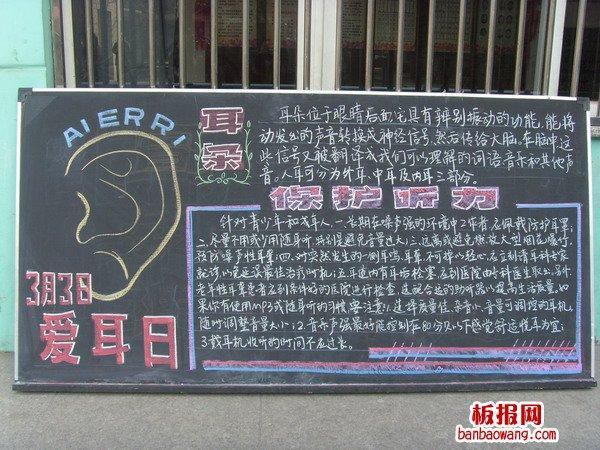 AI ER RI
3月3日
爱耳日
耳朵
耳朵位于眼睛后面,它具有辨别振动的功能,能将
动发出的声音转换成神经信号,然后传给大脑。在脑中,这
些信号又被翻译成我们可以理解的词语、音乐和其他声
音。人耳可分为外耳、中耳及内耳三部分。
保护听力
针对青少年和成年人,一、长期在噪声强的环境中工作者,应佩戴防护耳罩;
二、尽量不用或少用随身听,特别要避免音量过大;三、远离或避免燃放大型烟花爆竹,
谨防噪声性耳聋;四、对突然发生的一侧耳鸣、耳聋,不可掉以轻心,应立刻请耳科专家
就诊,以免延误最佳治疗时机;五、耳道内有耳垢栓塞,应到医院由专科医生取出;另外
老年性耳聋患者应到条件好的医院进行检查,选配合适的助听器以提高生活质量。如
果你有使用MP3或随身听的习惯,要注意:1.选择质量佳、杂音小、音量可调馏的耳机,
随时调整音量大小;2.音乐声强最好能控制在80分贝以下,感觉舒适悦耳为宜;
3.戴耳机收听的时间不应过长。
板报网
banbaowang.com